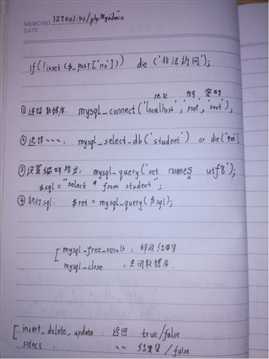 MEMO NO.
DATE
127.0.0.1/phpMyAdmin
if(!isset($_POST['no'])) die('非法访问');
地址 账号 密码
①连接数据库: mysql_connect('localhost','root','root');
②选择~~~: mysql_select_db('student') or die('
③设置编码格式: mysql_query('set names utf8');
$sql="select * from student";
④执行sql: $ret = mysql_query($sql);
mysql_free_result: 释放
mysql_close : 关闭数据库
insert delete update : 返回 true/false
select : ~~ 结果集/false